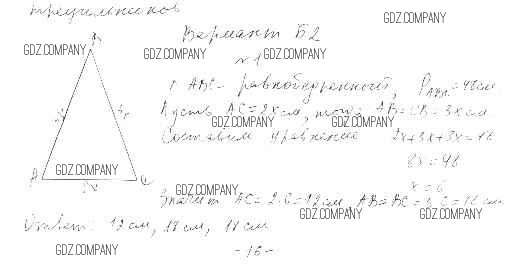 треугольников
Вариант Б2
№1
ABC – равнобедренный, P_ABC = 48 см
Пусть AC = 2x см, тогда AB = CB = 3x см
Составим уравнение 2x+3x+3x=48
8x = 48
x = 6
Значит AC = 2·6 = 12 см, AB = BC = 3·6 = 18 см
Ответ: 12 см, 18 см, 18 см
- 16 -
B
3x
3x
A
2x
C
GDZ.COMPANY
GDZ.COMPANY
GDZ.COMPANY
GDZ.COMPANY
GDZ.COMPANY
GDZ.COMPANY
GDZ.COMPANY
GDZ.COMPANY
GDZ.COMPANY
GDZ.COMPANY
GDZ.COMPANY